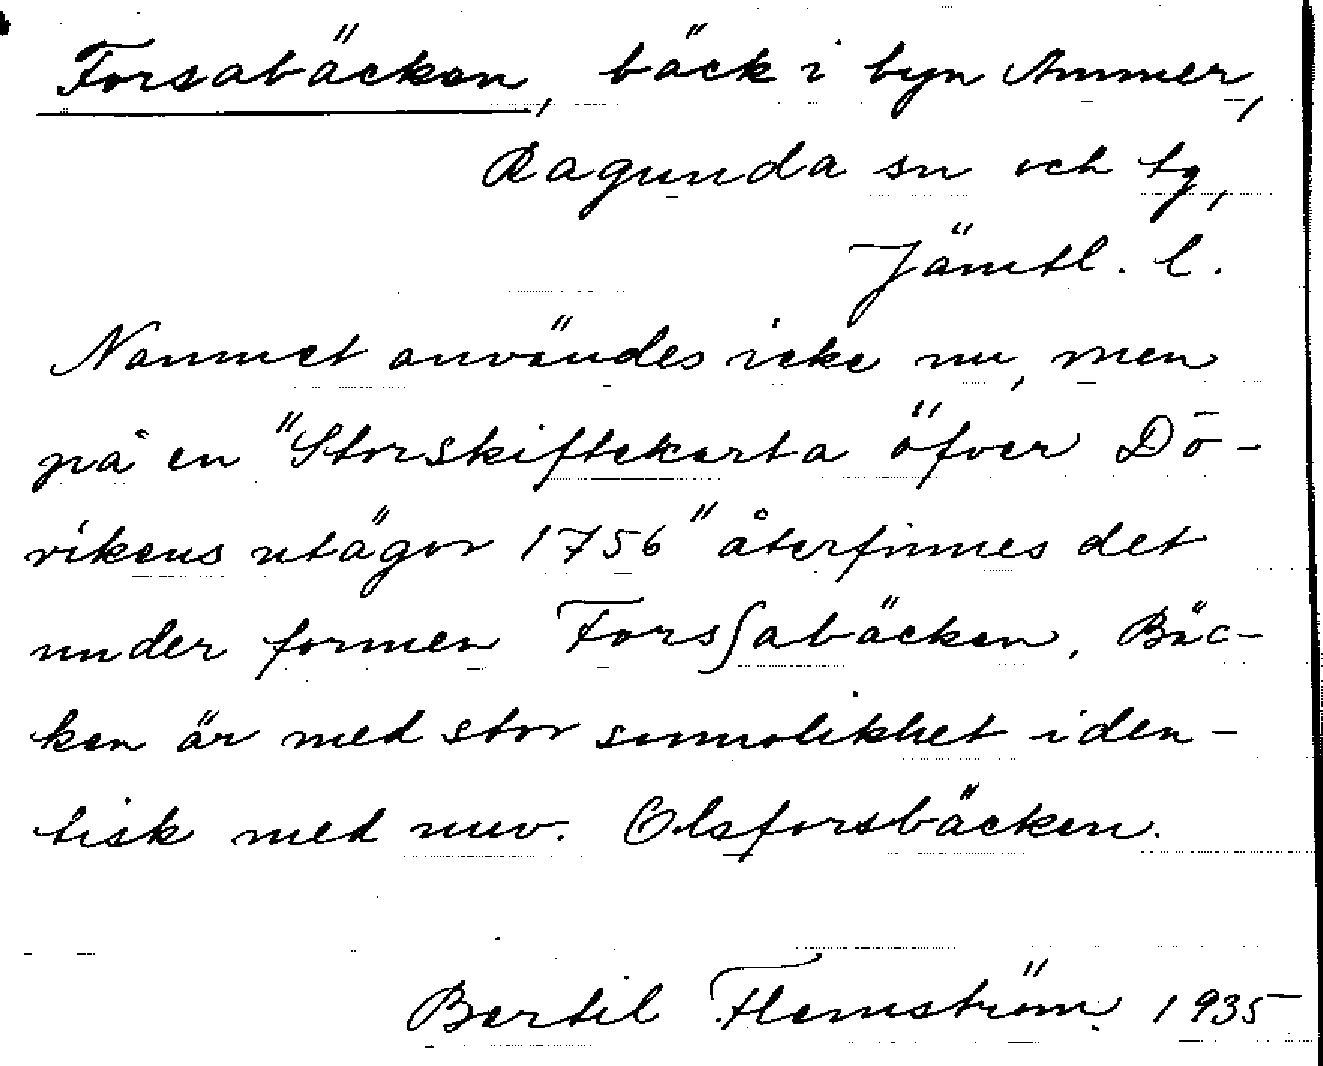 Forsabäcken, bäck i byn Ammer,
Ragunda sn och tg,
Jämtl. l.
Namnet användes icke nu, men
på en "Storskiftekarta öfver Dö-
vikens utägor 1756" återfinnes det
under formen Forsſabäcken. Bäc-
ken är med stor sannolikhet iden-
tisk med nuv. Olsforsbäcken.
Bertil Flemström 1935